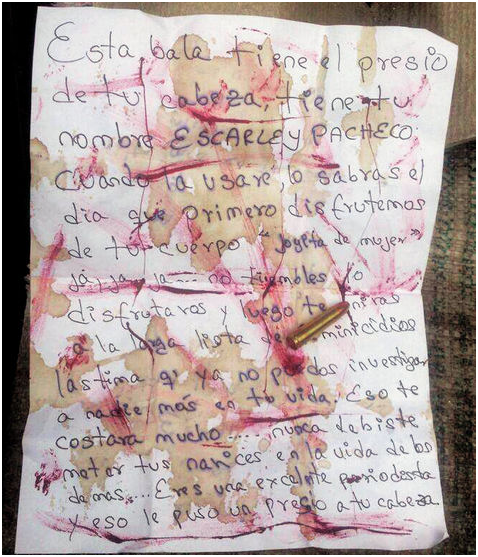 Esta bala tiene el presio
de tu cabeza, tiene tu
nombre ESCARLEY PACHECO.
Cuando la usare, lo sabras el
dia que primero disfrutemos
de tu cuerpo "joyita de mujer"
ja ja ja... no tiembles lo
disfrutaras y luego te
a la larga lista de
lastima q' ya no puedas investigar
a nadie más en tu vida. Eso te
costara mucho.... nunca debiste
meter tus narices en la vida de los
demas... Eres una excelente periodista
y eso le puso un presio a tu cabeza